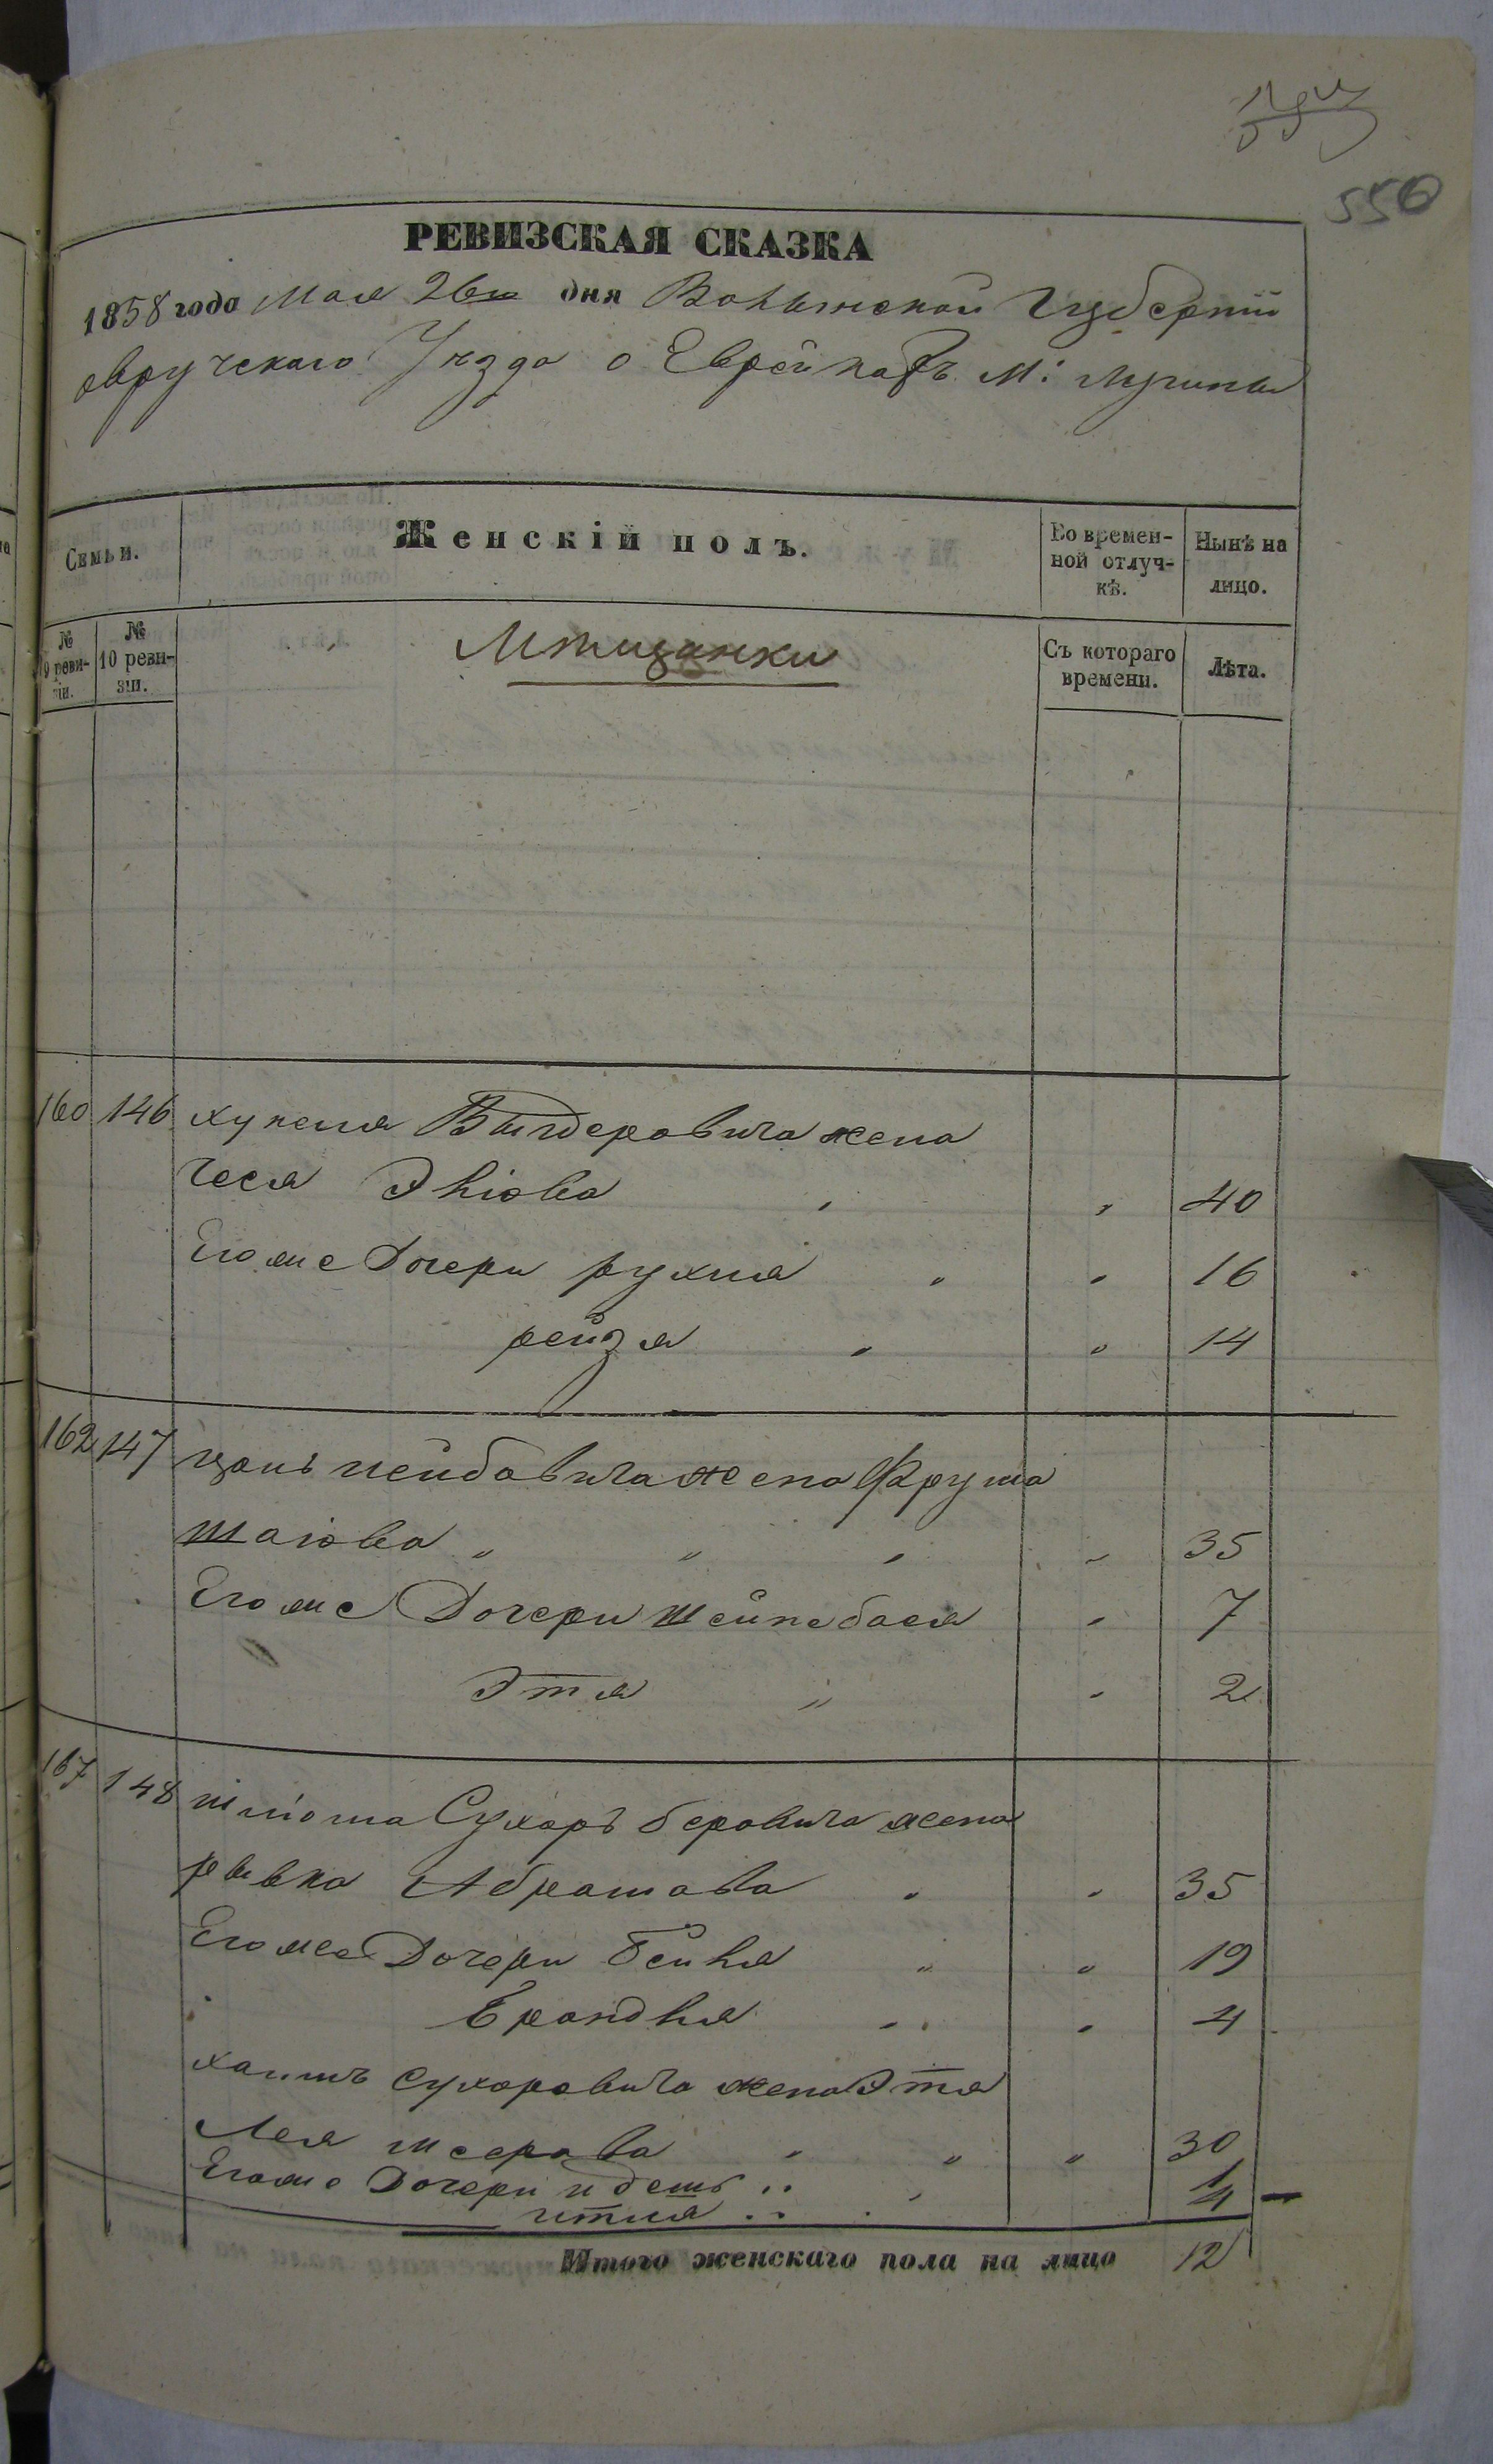 550
РЕВИЗСКАЯ СКАЗКА
1858 года Мая 26го дня Волынской Губерніи
овручскаго Уезда о Еврейкахъ М: Лугины
Семьи.
Женскій полъ.
Во времен-
ной отлуч-
кѣ.
Нынѣ на
лицо.
№
9 реви-
зіи.
№
10 реви-
зіи.
Мѣщанки
Съ котораго
времени.
Лѣта.
160 146 Выгдеровича жена
Чеся Элiова 40
Егоже Дочери рухля 16
рейзя 14
162 147 лейбовича жена Фрума
Шаiова 35
Егоже Дочери Шейнебася 7
Этя 2
167 148 Шлiома Сухаръ беровича жена
рывка Абрамова 35
Егоже Дочери Бейля 19
Брандля 4
хаимъ Сухаровича жена Этя
Лея 30
Егоже Дочери 1
итля 4
Итого женскаго пола на лицо 12